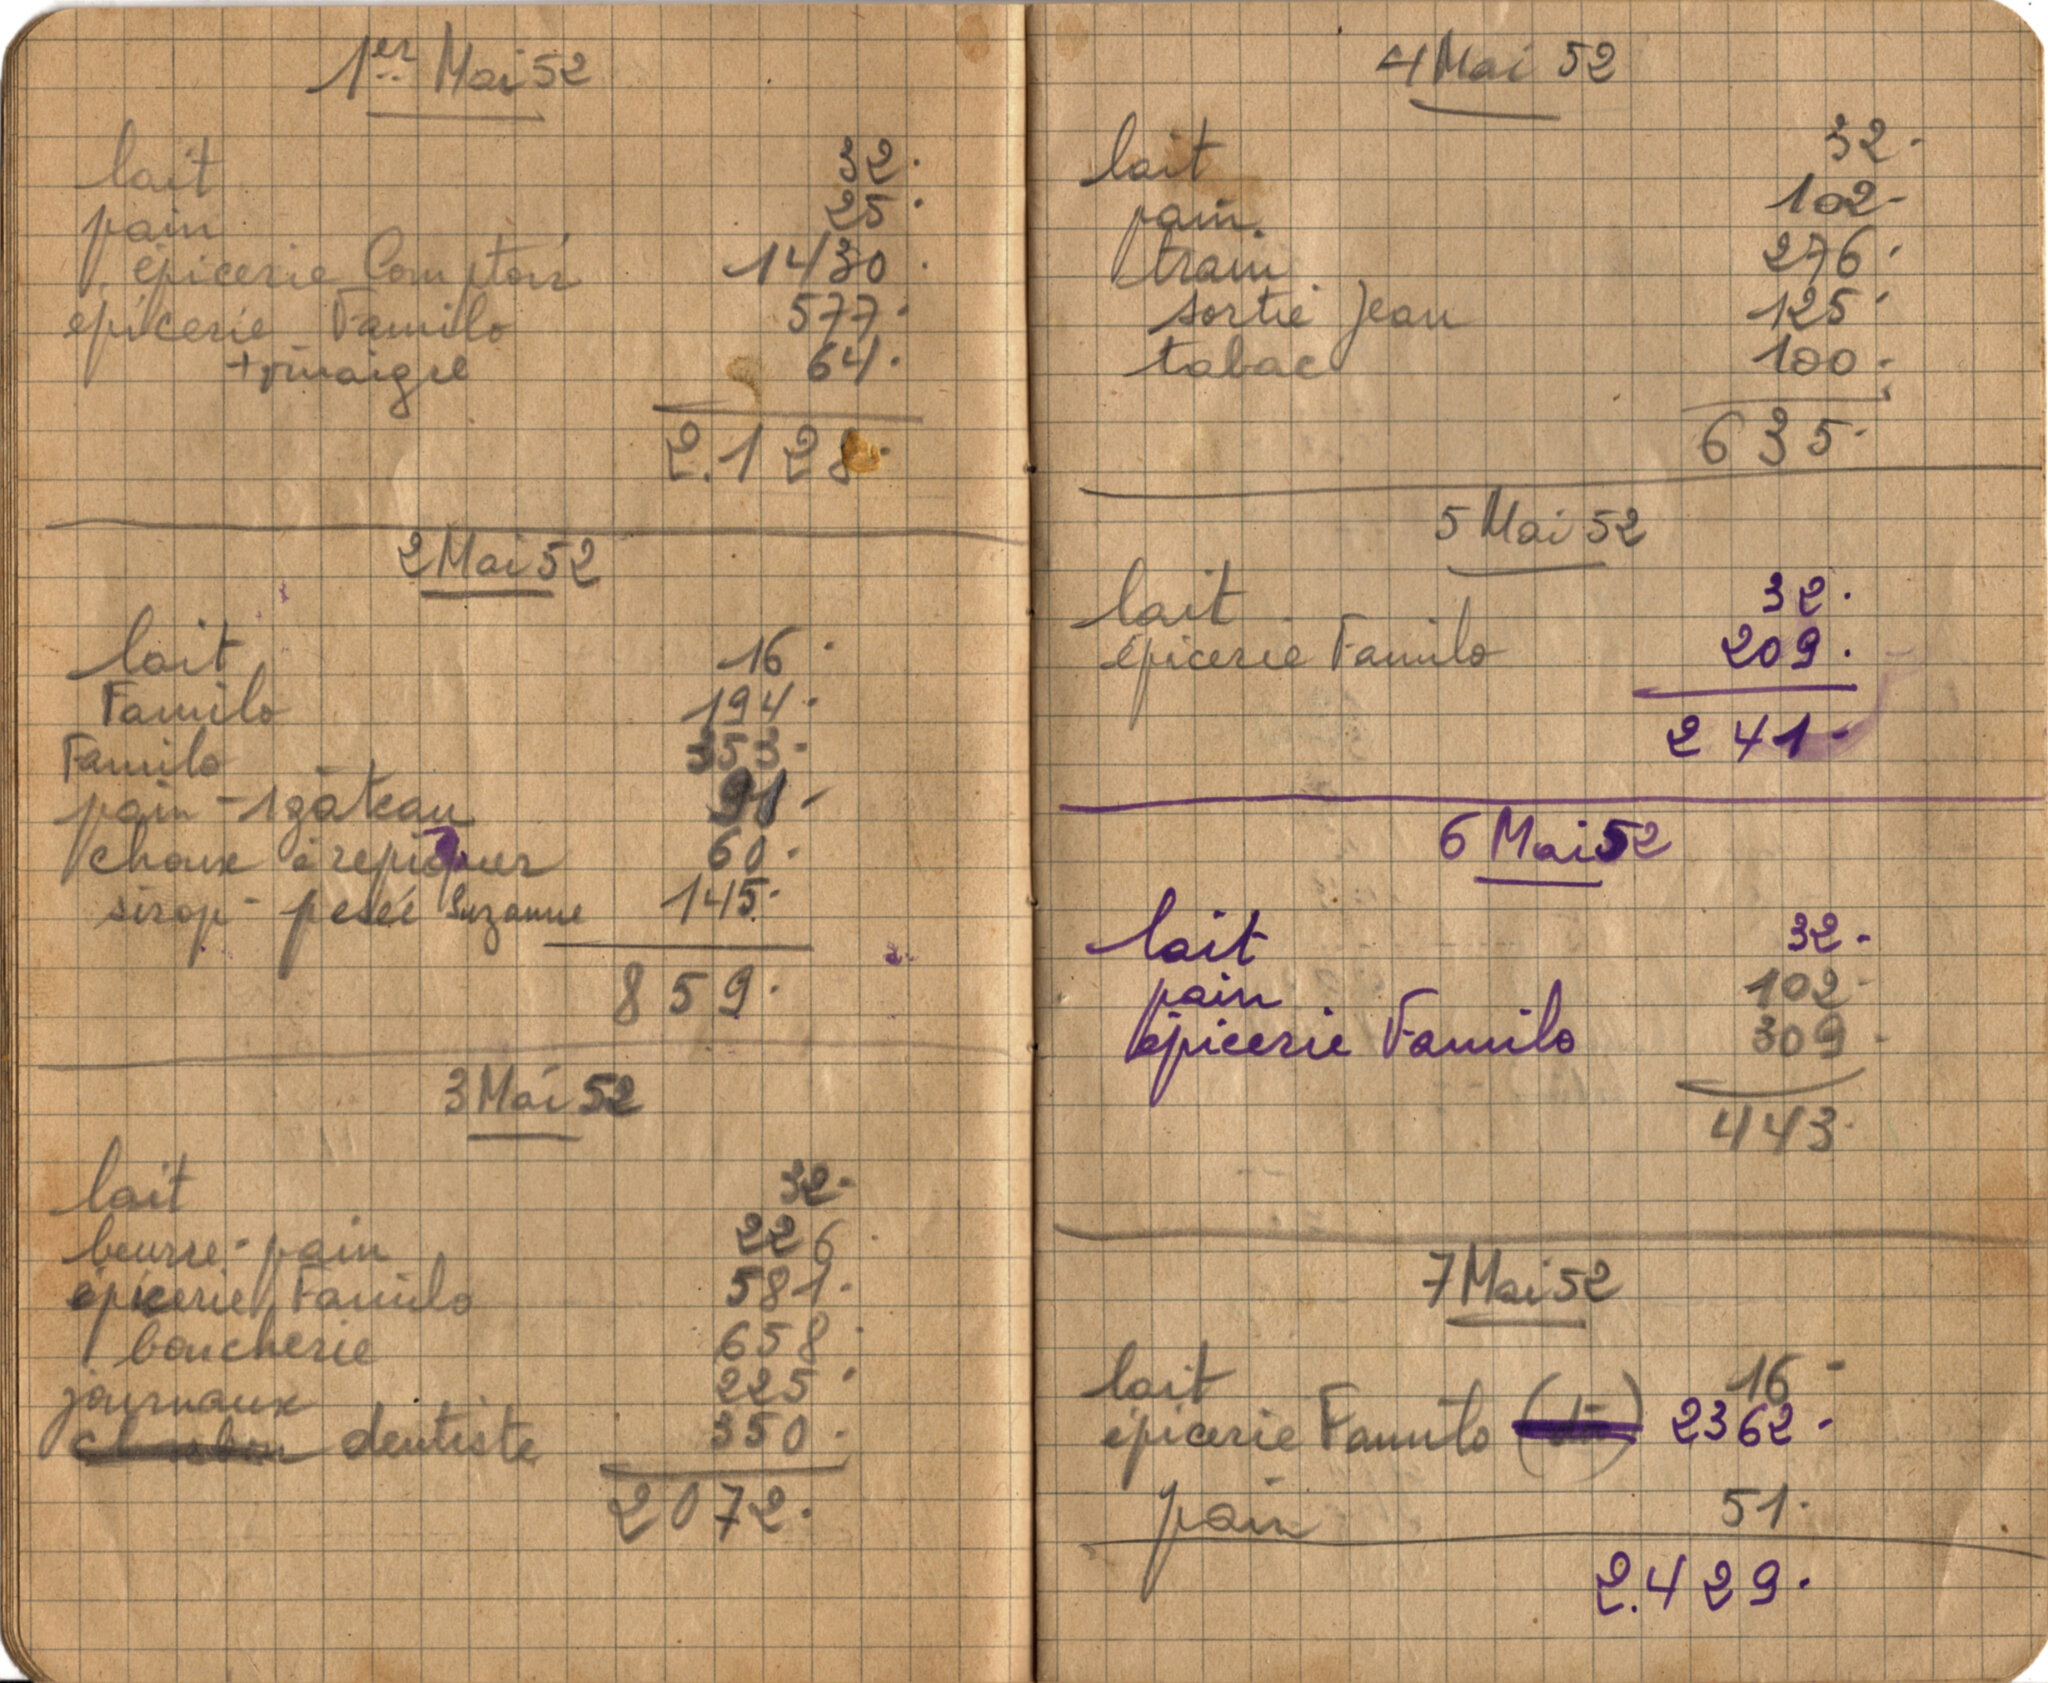 1er Mai 52
lait 32.
pain 25.
épicerie Comptoir 1430.
épicerie Familo 577.
+ vinaigre 64.
2.128.
2 Mai 52
lait 16.
Familo 194.
Familo 353.
pain - 1 gâteau 91.
choux à repiquer 60.
sirop - pesée Suzanne 145.
859.
3 Mai 52
lait 32.
beurre - pain 226.
épicerie Familo 581.
boucherie 658.
journaux 225.
dentiste 350.
2072.
4 Mai 52
lait 32.
pain. 102-
train 276.
sortie Jean 125.
tabac 100.
635.
5 Mai 52
lait 32.
épicerie Familo 209.
241.
6 Mai 52
lait 32.
pain 102.
épicerie Familo 309.
443.
7 Mai 52
lait 16-
épicerie Familo 2362.
pain 51.
2.429.